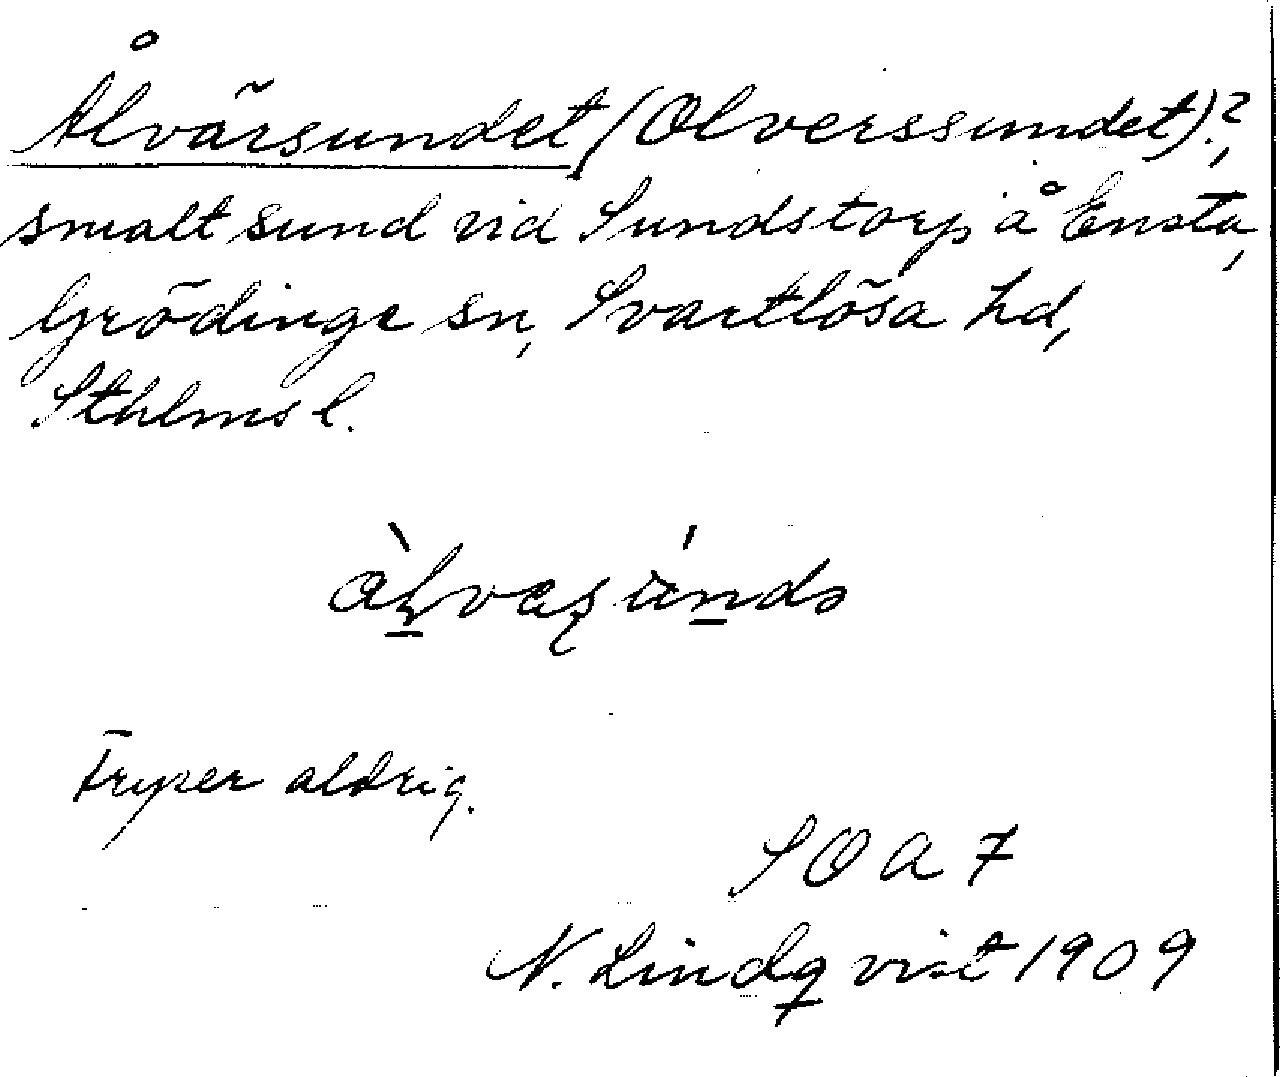 Ålvärsundet (Olverssundet)?,
smalt sund vid Sundstorp å Ensta,
Grödinge sn, Svartlösa hd,
Sthlms l.
Fryser aldrig.
SOA 7
N. Lindqvist 1909